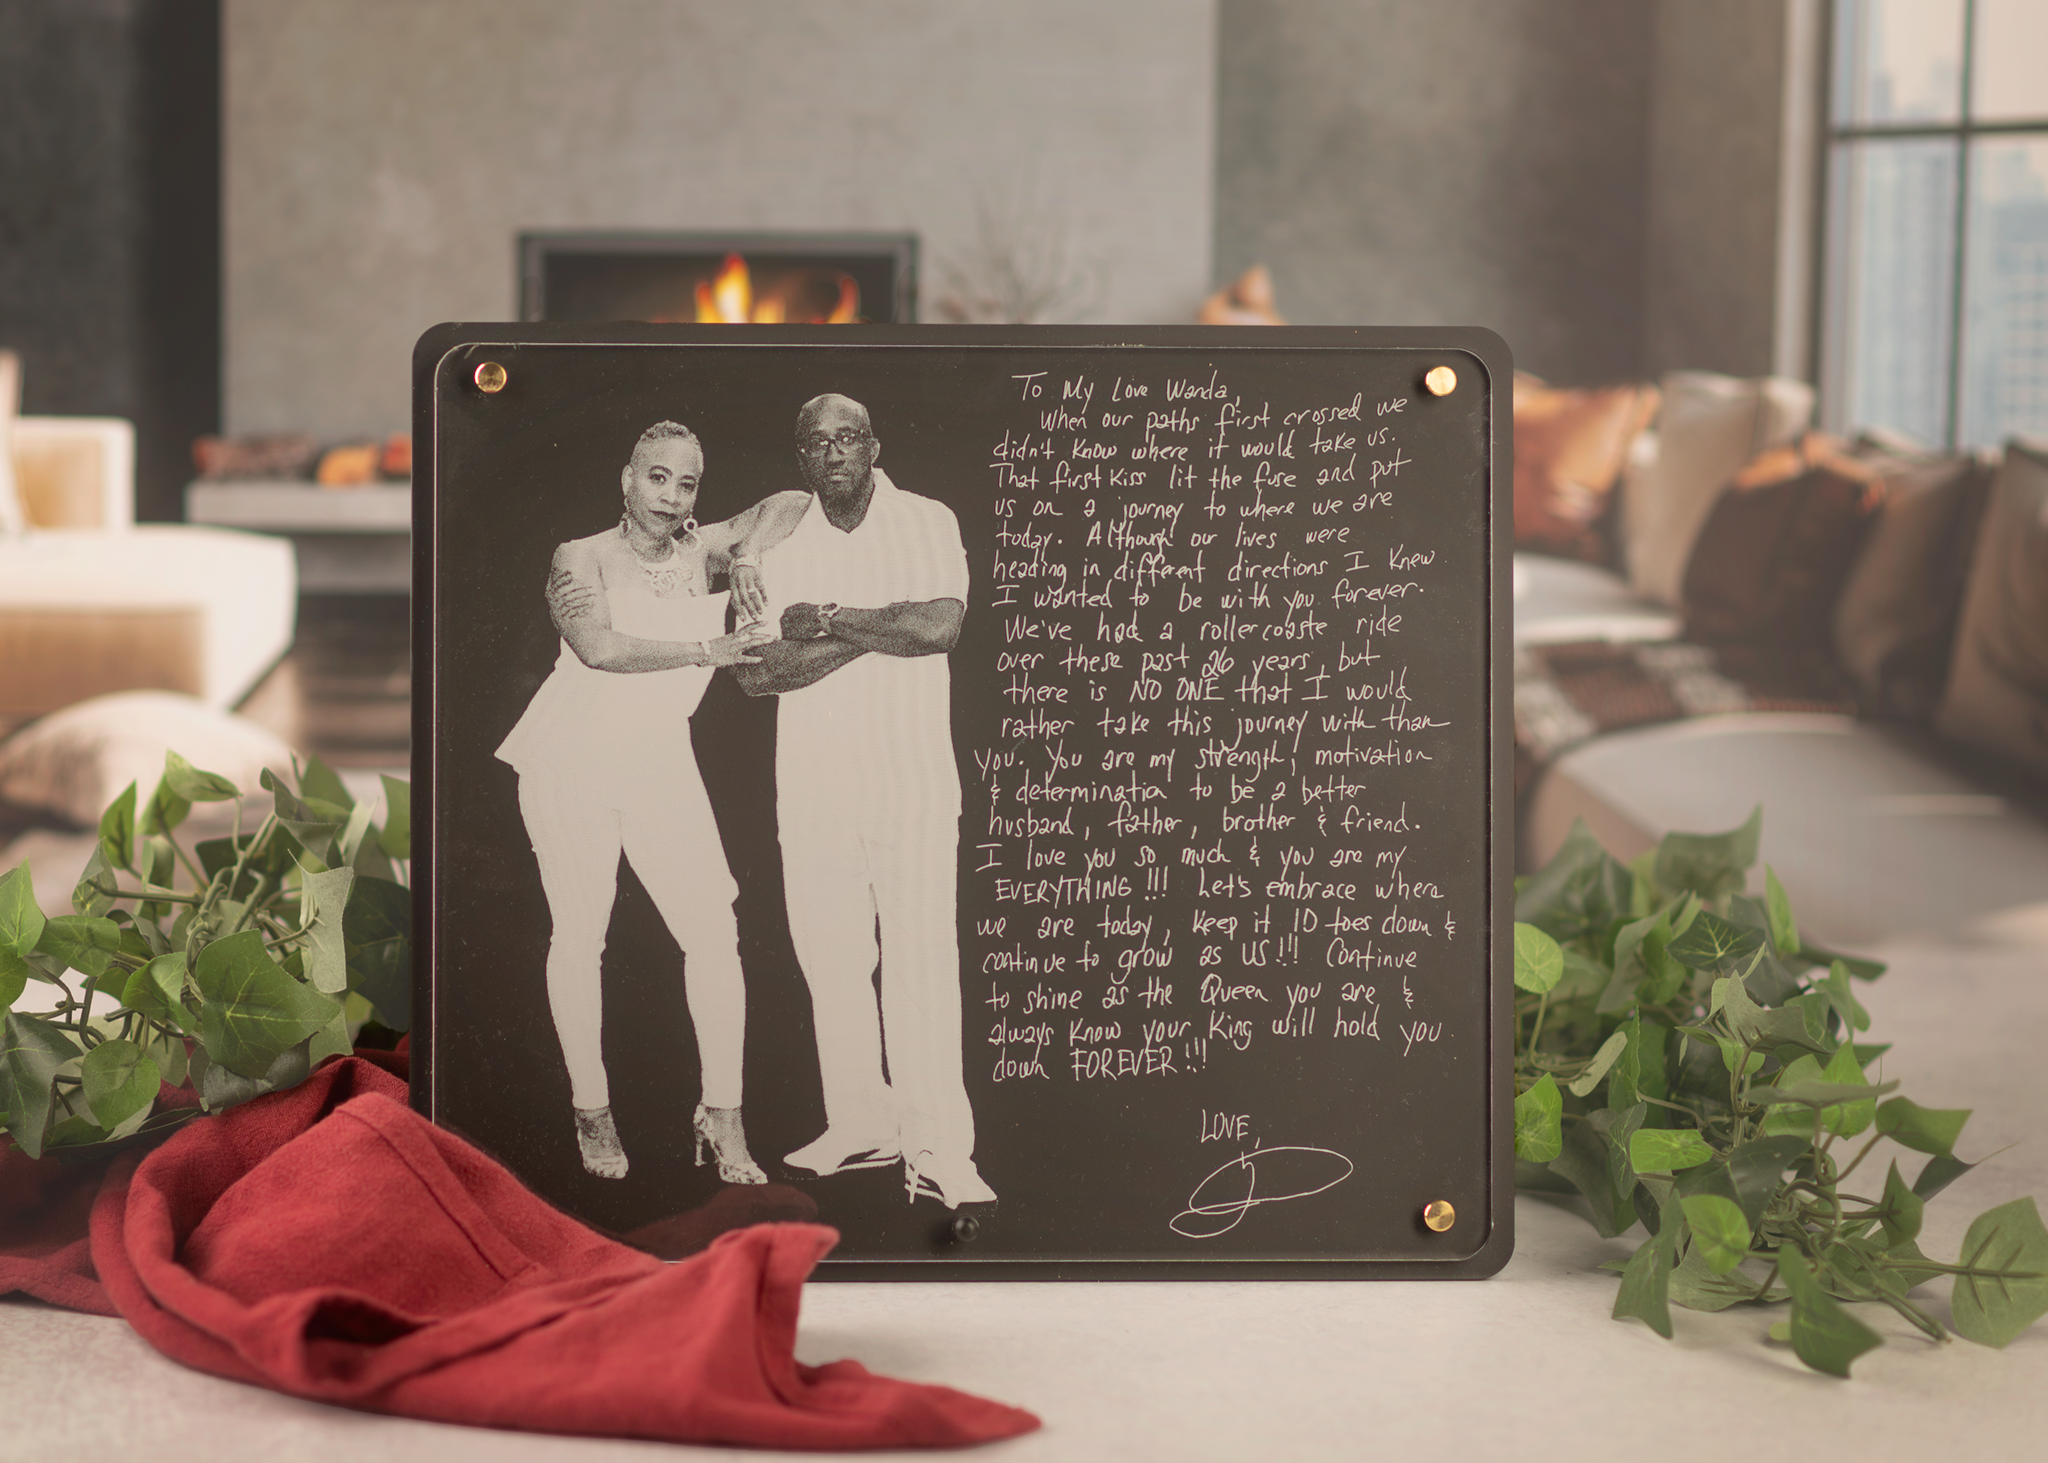 To My Love Wanda,
When our paths first crossed we
didn't know where it would take us.
That first kiss lit the fuse and put
us on a journey to where we are
today. Although our lives were
heading in different directions I knew
I wanted to be with you forever.
We've had a rollercoaste ride
over these past 26 years, but
there is NO ONE that I would
rather take this journey with than
you. You are my strength, motivation
& determination to be a better
husband, father, brother & friend.
I love you so much & you are my
EVERYTHING!!! Let's embrace where
we are today, keep it 10 toes down &
continue to grow as US!!! Continue
to shine as the Queen you are &
always know your King will hold you
down FOREVER!!!
LOVE,